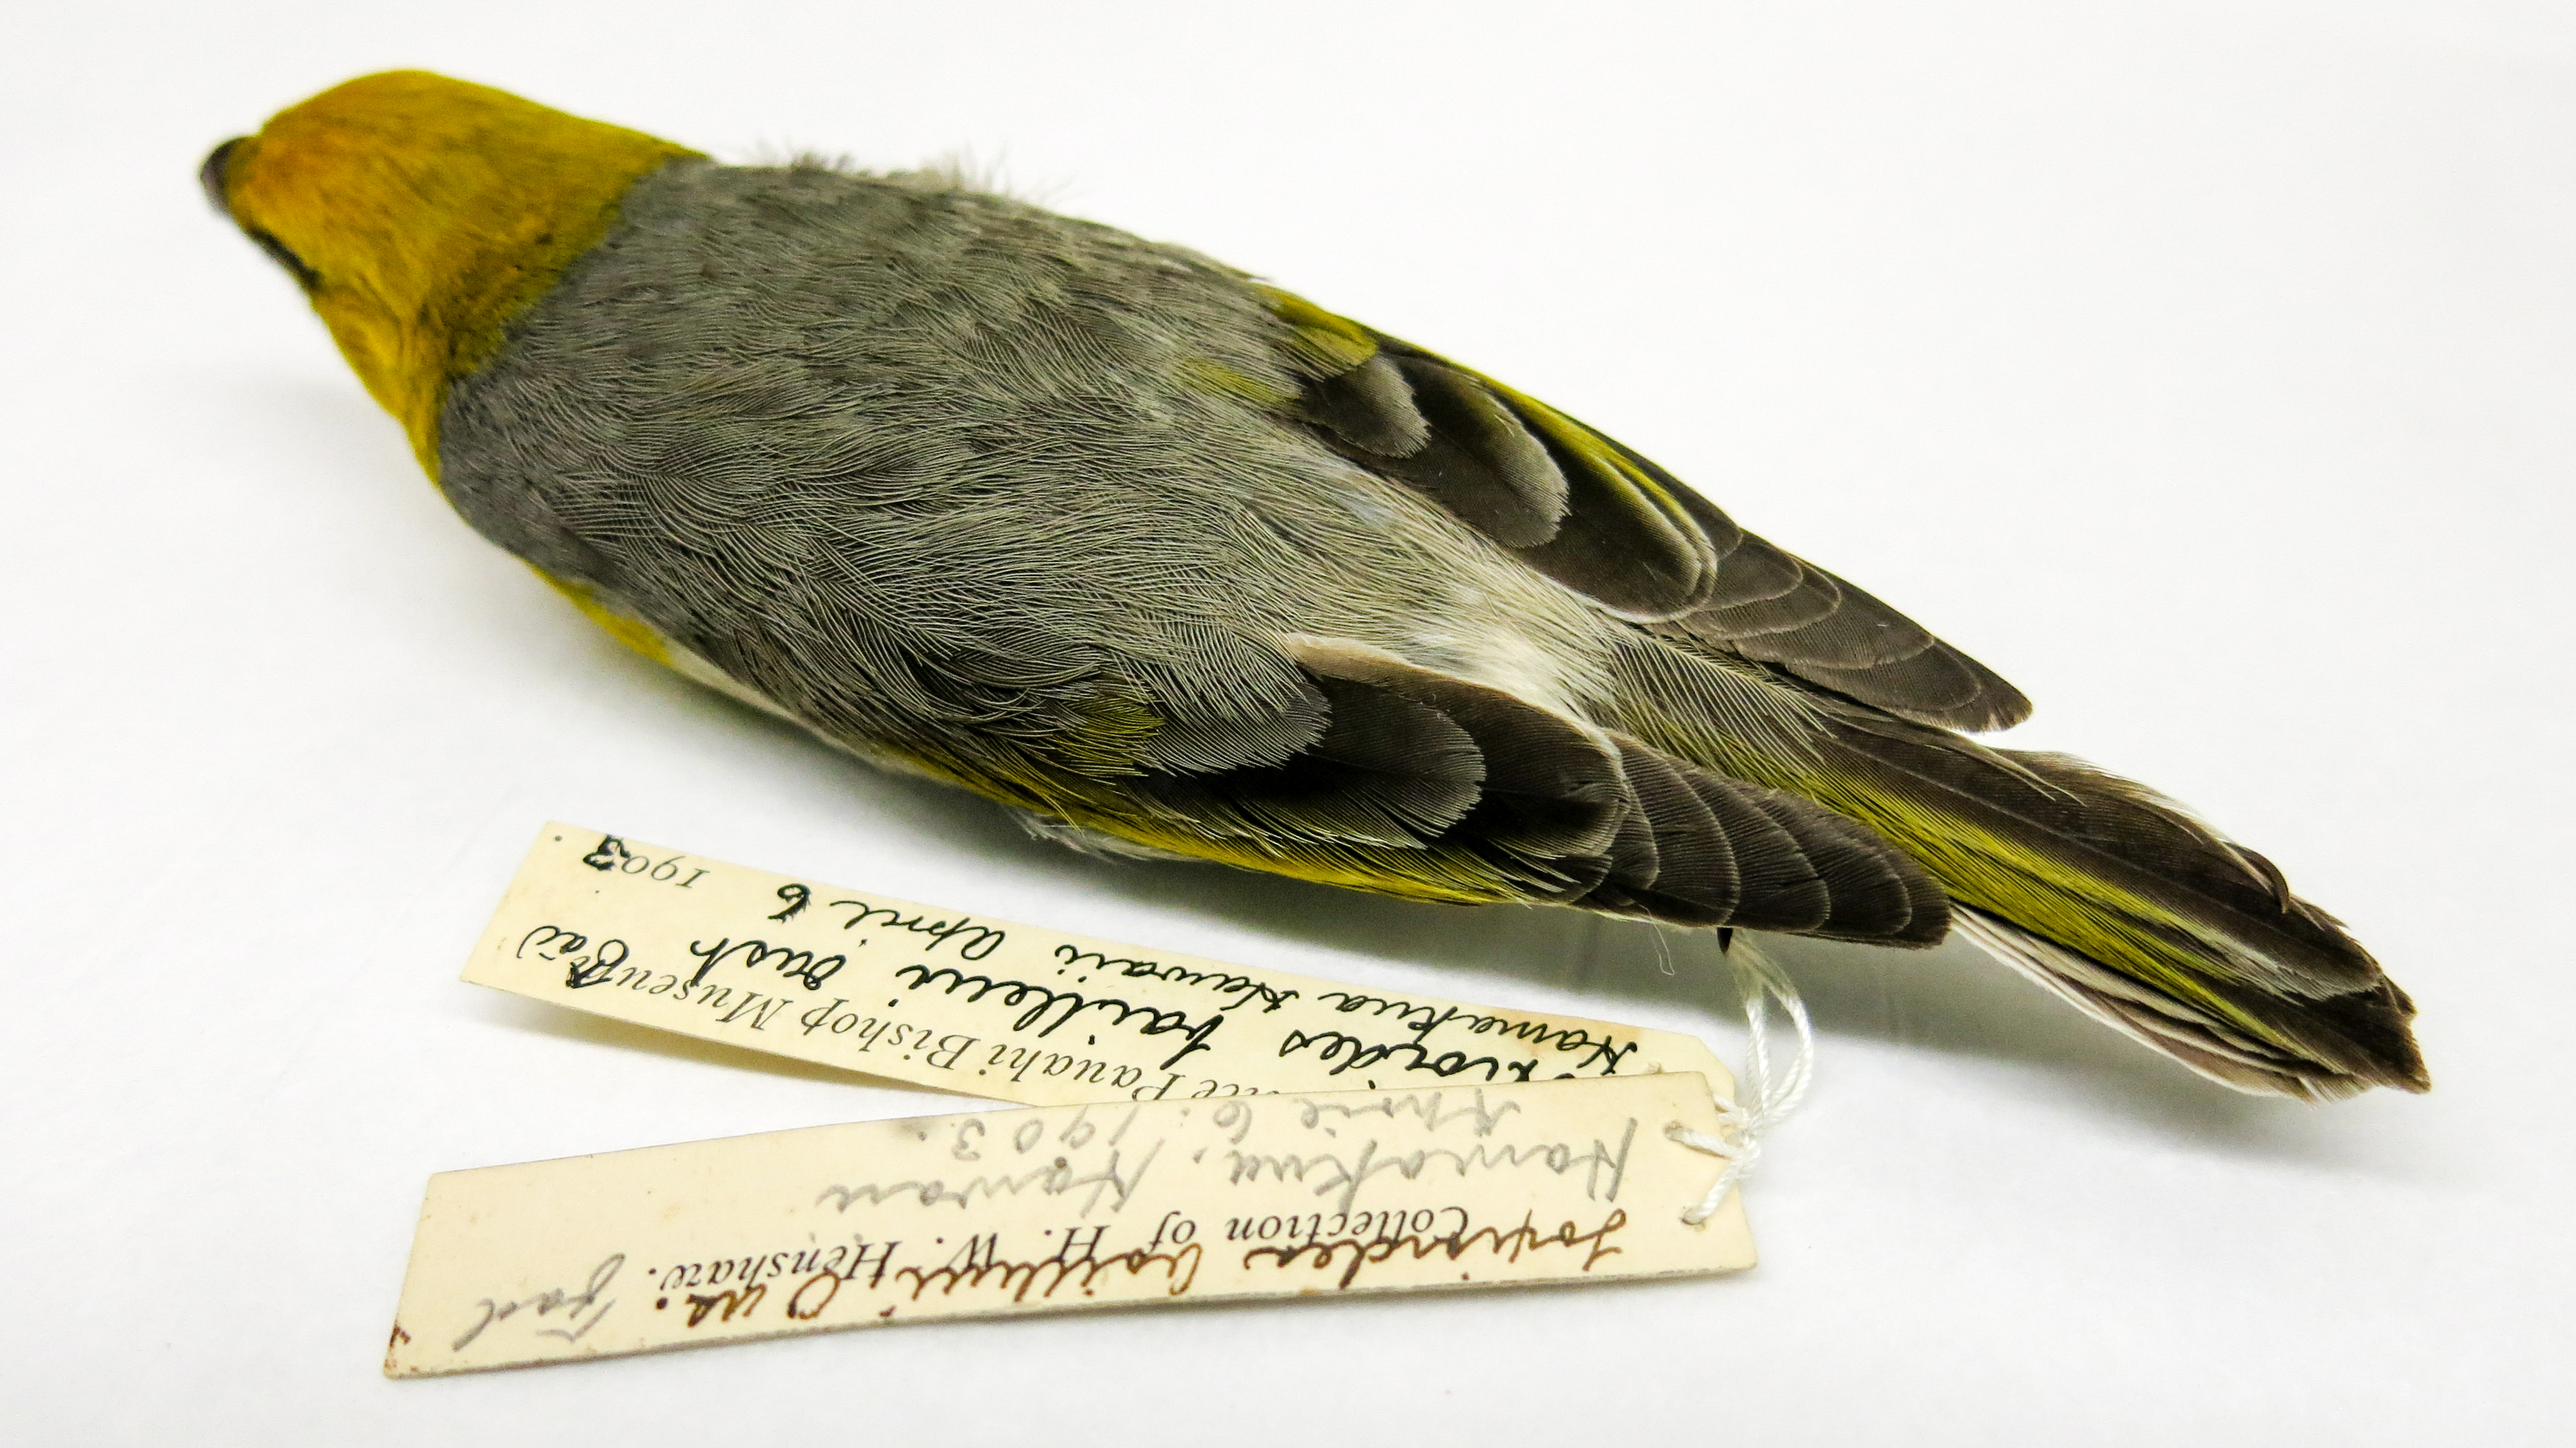 Pauahi Bishop Museum
bailleui Oust
Hamakua Hawaii April 6 1903
Loxioides bailleui Ous.
Collection of H. W. Henshaw.
Hamakua, Hawaii
April 6. 1903.